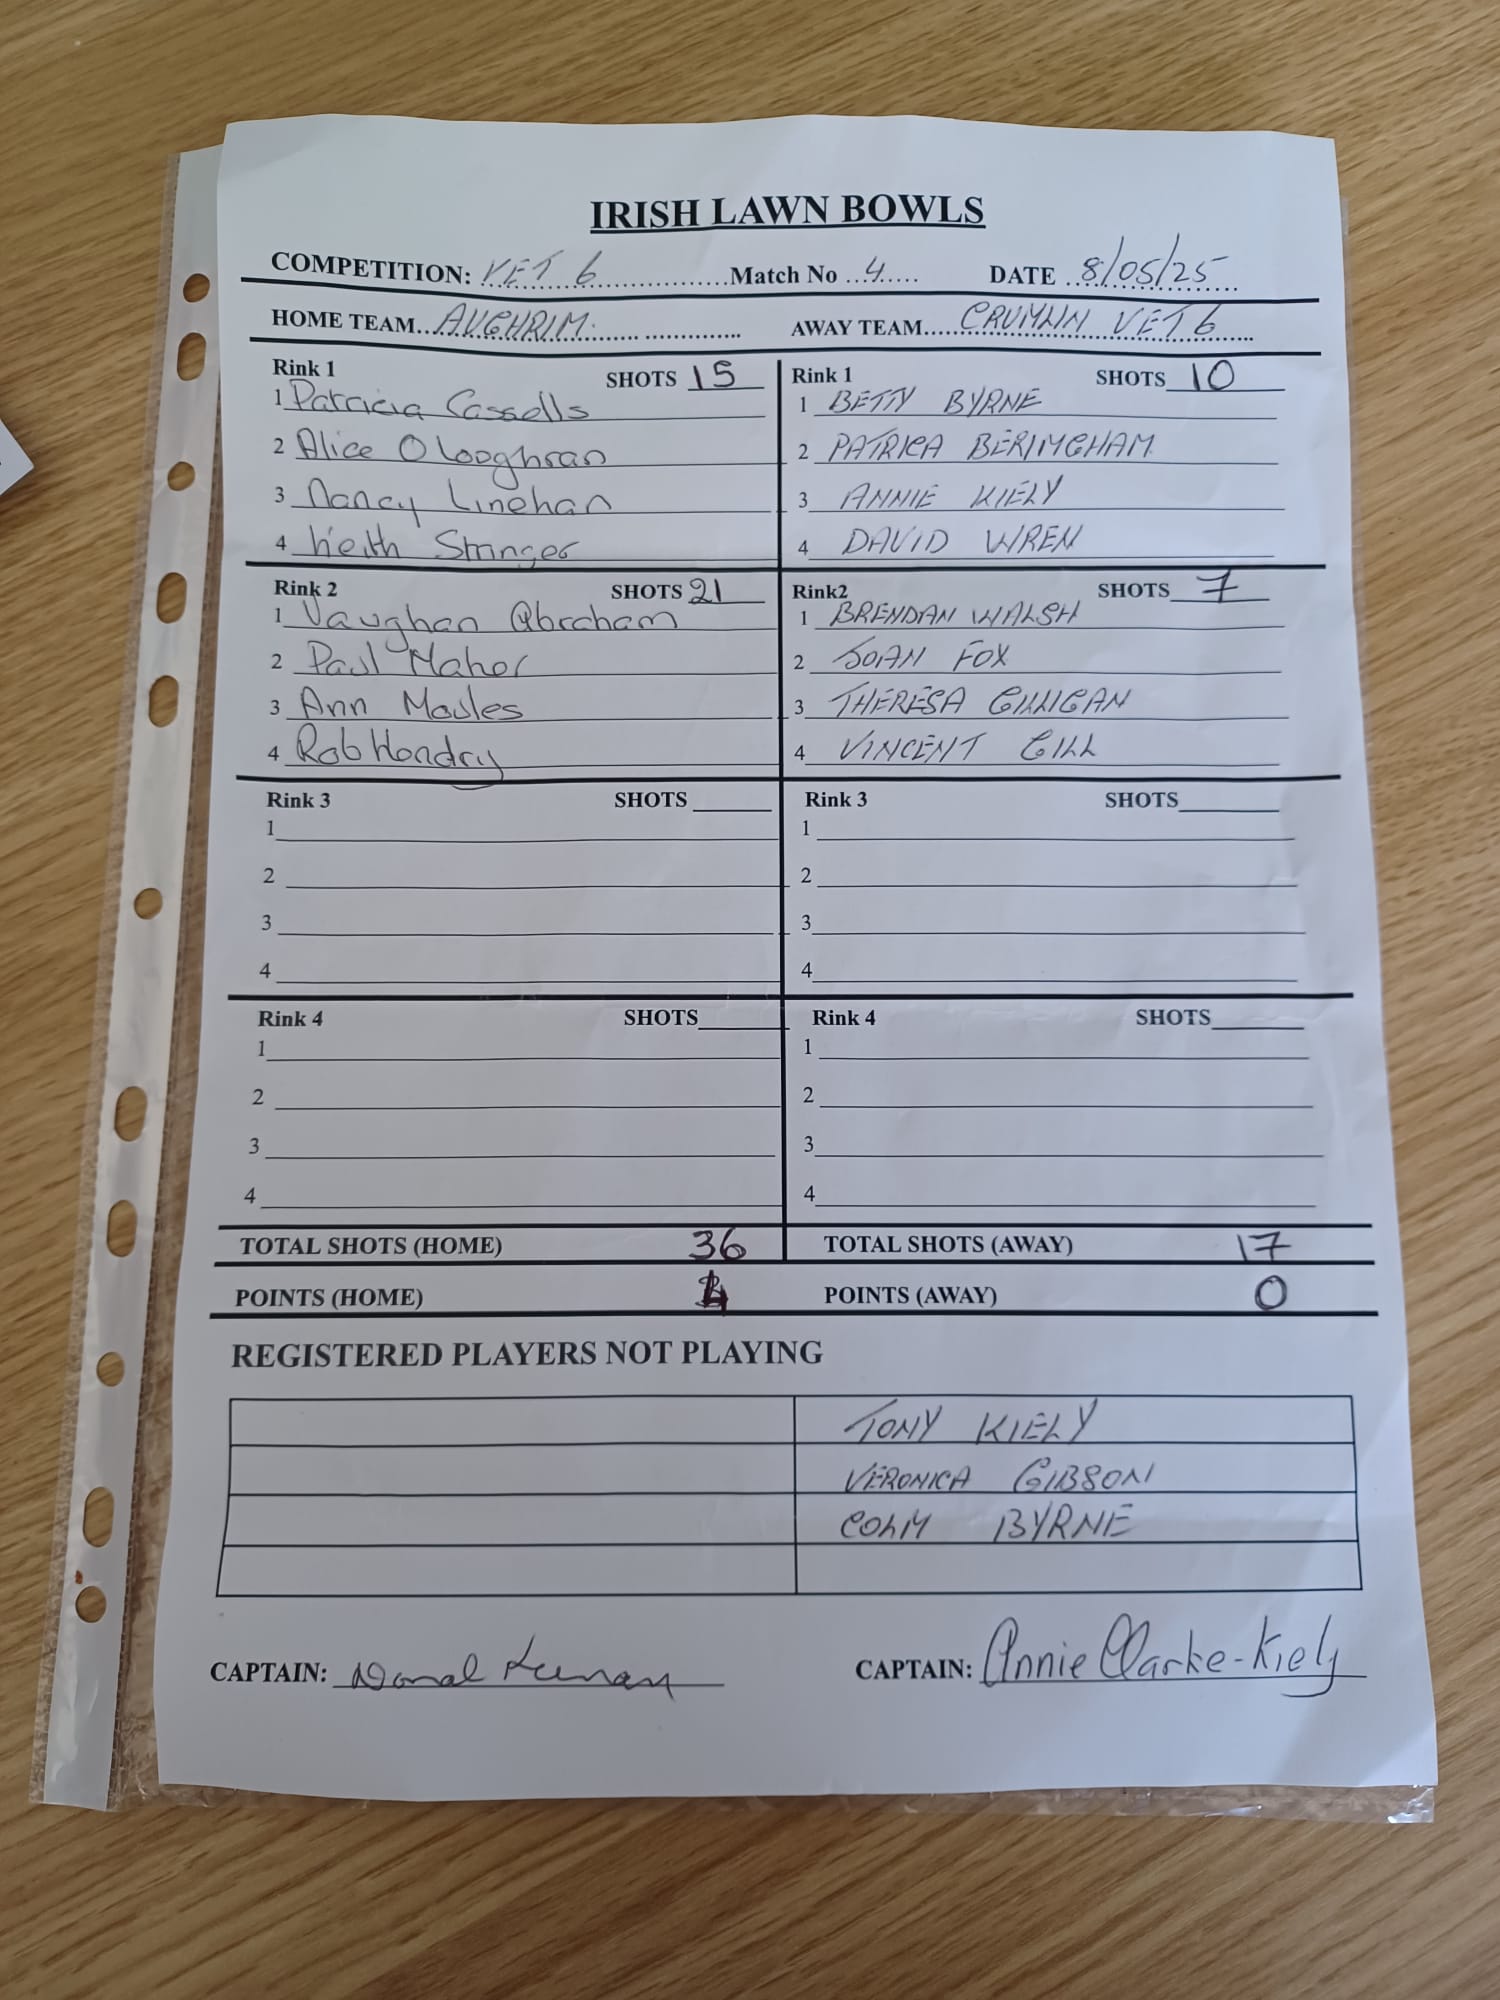 IRISH LAWN BOWLS
COMPETITION: VET 6 Match No 4 DATE 8/05/25
HOME TEAM AUGHRIM. AWAY TEAM CRUMLIN VET 6
Rink 1 SHOTS 15
1 Patricia Cassells
2 Alice O Looghran
3 Nancy Linehan
4 Keith Stringer
Rink 1 SHOTS 10
1 BETTY BYRNE
2 PATRICA BERIMGHAM
3 ANNIE KIELY
4 DAVID WREN
Rink 2 SHOTS 21
1 Vaughan Abraham
2 Paul Maher
3 Ann Moules
4 Rob Hendry
Rink2 SHOTS 7
1 BRENDAN WALSH
2 JOAN FOX
3 THERESA GILLIGAN
4 VINCENT GILL
Rink 3 SHOTS
1
2
3
4
Rink 3 SHOTS
1
2
3
4
Rink 4 SHOTS
1
2
3
4
Rink 4 SHOTS
1
2
3
4
TOTAL SHOTS (HOME) 36 TOTAL SHOTS (AWAY) 17
POINTS (HOME) 4 POINTS (AWAY) 0
REGISTERED PLAYERS NOT PLAYING
TONY KIELY
VERONICA GIBSON
COLM BYRNE
CAPTAIN: Donal Keenan CAPTAIN: Annie Clarke-Kiely